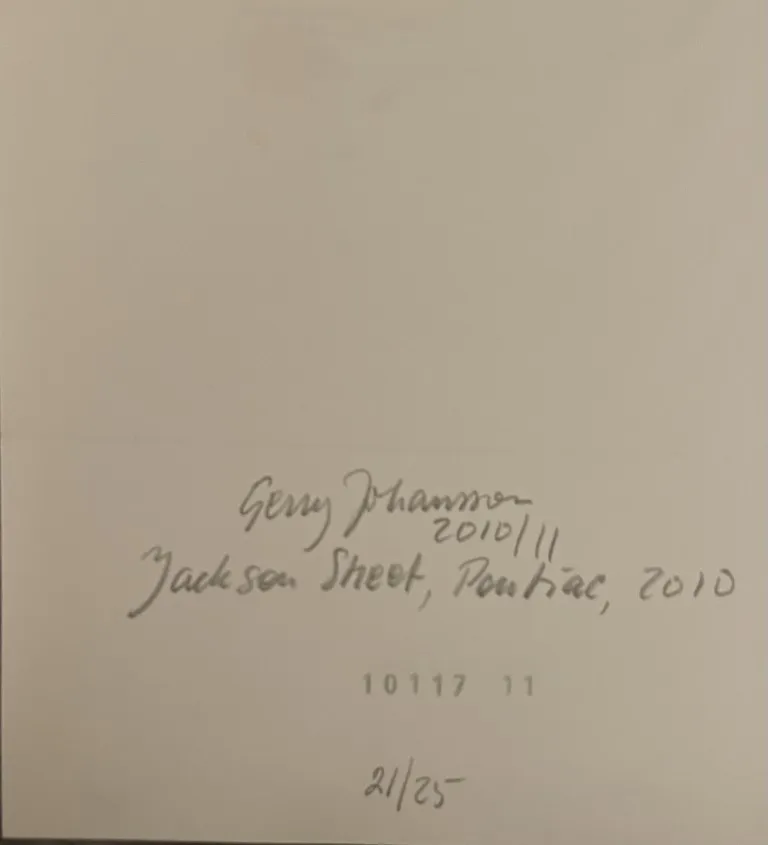 Gerry Johansson
2010/11
Jackson Street, Pontiac, 2010
10117 11
21/25